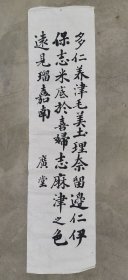 多仁养津毛美土理奈留邊仁伊
保志米底於喜婦志麻津之色
遠見瑠嘉南
廣堂